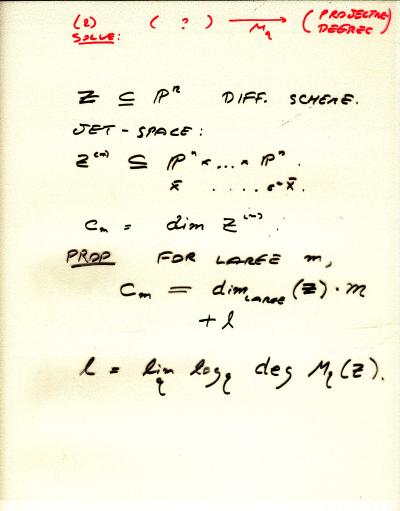 (2) ( ? ) → M_q ( PROJECTIVE
SOLVE: DEGREE )
Z ⊆ ℙⁿ DIFF. SCHEME.
JET-SPACE:
Z^(m) ⊆ ℙⁿ × ... × ℙⁿ.
x̄ . . . . σᵐx̄.
C_m = dim Z^(m).
PROP FOR LARGE m,
C_m = dim_LARGE (Z) · m
+ l
l = lim_q log_q deg M_q(Z).